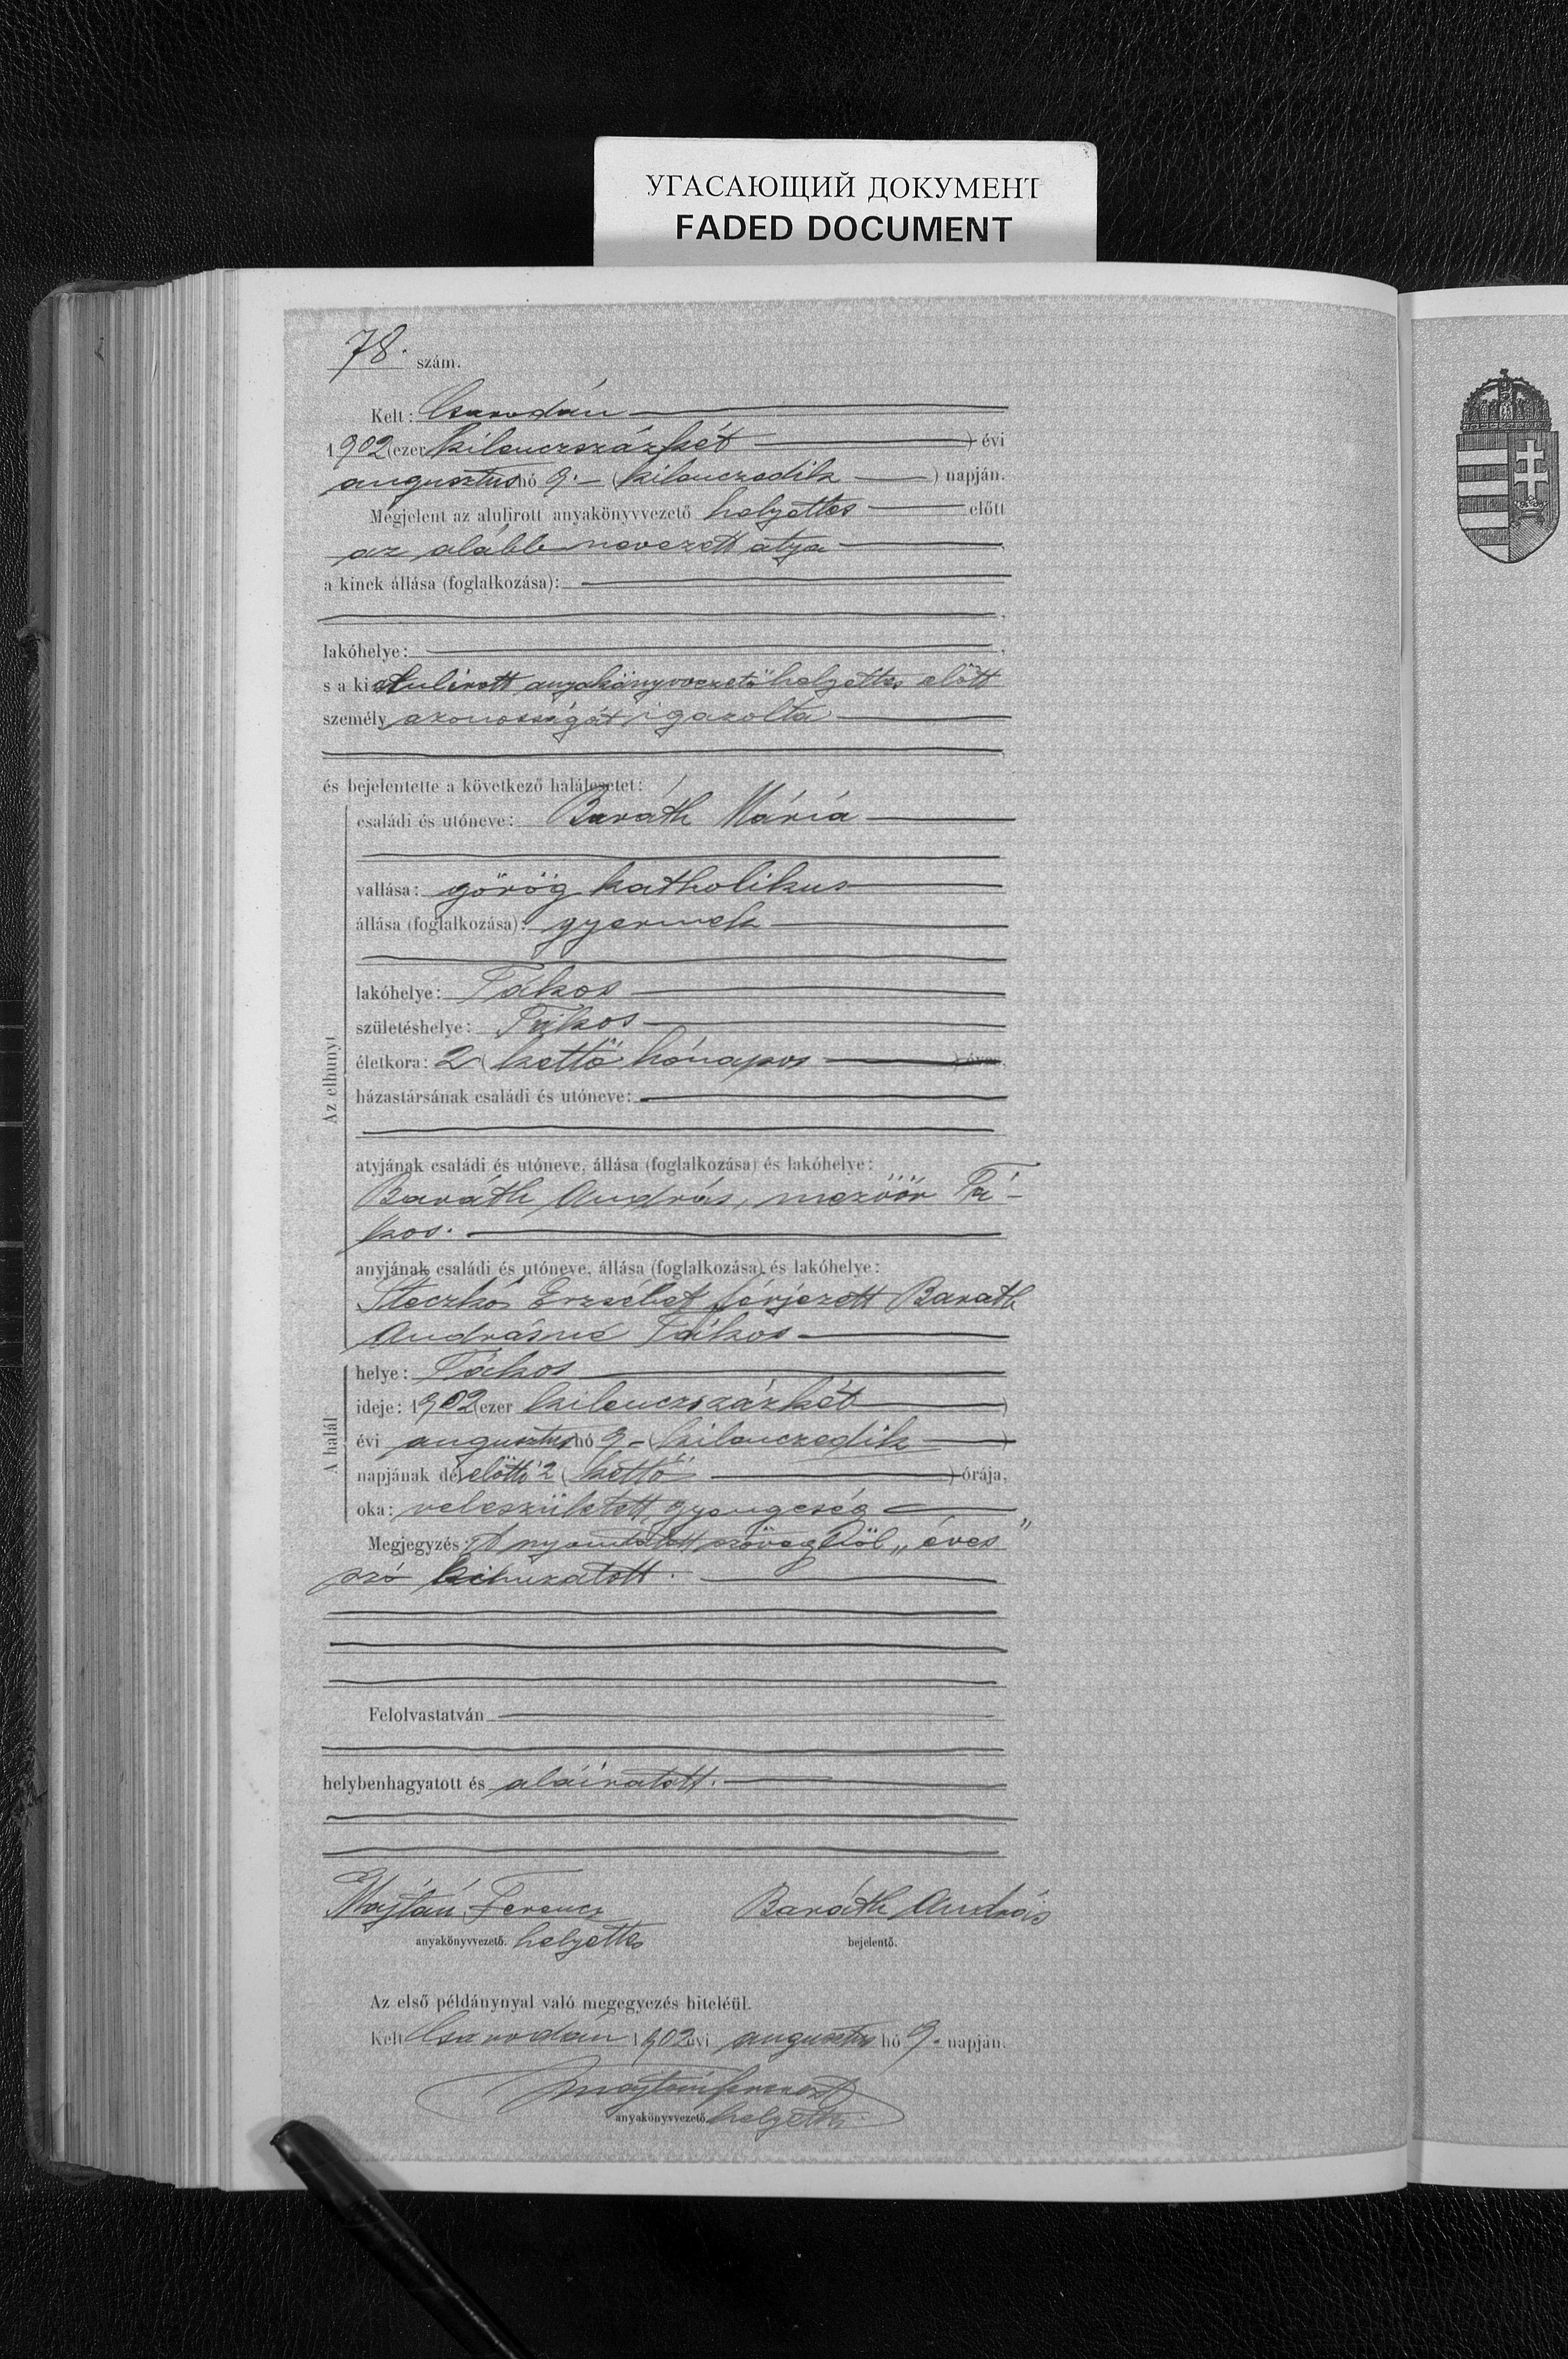 УГАСАЮЩИЙ ДОКУМЕНТ
FADED DOCUMENT
78. szám.
Kelt: Csarodán
1902 (ezer kilenczszázkét) évi
augusztus hó 9. (kilenczedik) napján.
Megjelent az alulirott anyakönyvvezető helyettes előtt
az alább nevezett atya,
a kinek állása (foglalkozása):
,
lakóhelye: ,
s a ki alulirott anyakönyvvezető helyettes előtt
személy azonosságát igazolta
,
és bejelentette a következő halálesetet:
Az elhunyt
családi és utóneve: Baráth Mária
vallása: görög katholikus
állása (foglalkozása): gyermek
lakóhelye: Tákos
születéshelye: Tákos
életkora: 2 (kettő hónapos) éves.
házastársának családi és utóneve:
atyjának családi és utóneve, állása (foglalkozása) és lakóhelye:
Baráth András, mezőőr Tá-
kos.
anyjának családi és utóneve, állása (foglalkozása) és lakóhelye:
Steczkó Erzsébet férjezett Barath
Andrásné Tákos
A halál
helye: Tákos
ideje: 1902 (ezer kilenczszázkét)
évi augusztus hó 9 (kilenczedik)
napjának délelőtti 2 (kettő) órája,
oka: veleszületett gyengeség
Megjegyzés: A nyomtatott szövegből „éves"
szó kihuzatott.
Felolvastatván
helybenhagyatott és aláiratott.
Majtán Ferencz
Baráth András
anyakönyvvezető. helyettes
bejelentő.
Az első példánynyal való megegyezés hiteléül.
Kelt Csarodán 1902 évi augusztus hó 9. napján.
Majtán Ferencz
anyakönyvvezető. helyettes